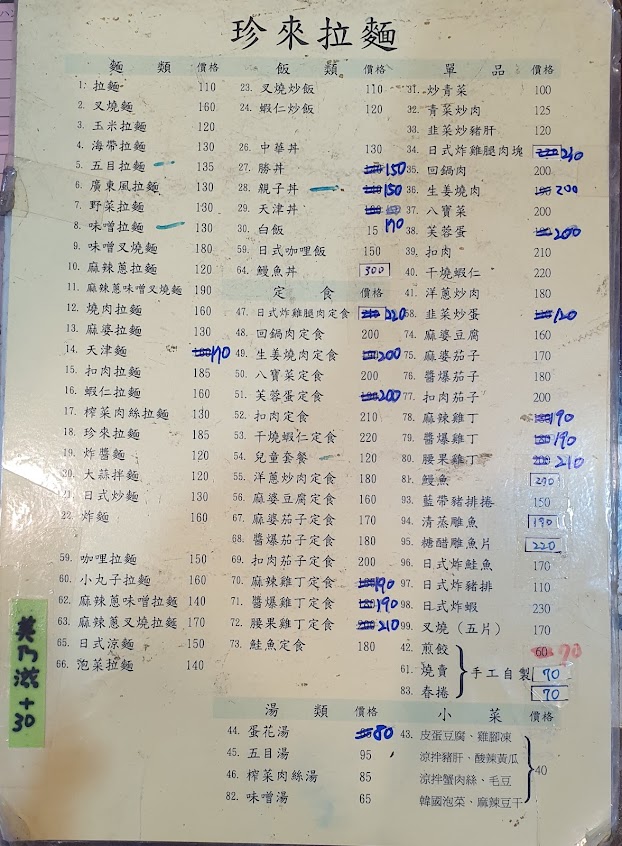 珍來拉麵
麵 類 價格
1. 拉麵 110
2. 叉燒麵 160
3. 玉米拉麵 120
4. 海帶拉麵 130
5. 五目拉麵 135
6. 廣東風拉麵 130
7. 野菜拉麵 130
8. 味噌拉麵 130
9. 味噌叉燒麵 180
10. 麻辣蔥拉麵 120
11. 麻辣蔥味噌叉燒麵 190
12. 燒肉拉麵 160
13. 麻婆拉麵 130
14. 天津麵 170
15. 扣肉拉麵 185
16. 蝦仁拉麵 160
17. 榨菜肉絲拉麵 130
18. 珍來拉麵 185
19. 炸醬麵 120
20. 大蒜拌麵 120
21. 日式炒麵 130
22. 炸麵 160
59. 咖哩拉麵 150
60. 小丸子拉麵 160
62. 麻辣蔥味噌拉麵 140
63. 麻辣蔥叉燒拉麵 170
65. 日式涼麵 150
66. 泡菜拉麵 140
美乃滋+30
飯 類 價格
23. 叉燒炒飯 110
24. 蝦仁炒飯 120
26. 中華丼 130
27. 勝丼 150
28. 親子丼 150
29. 天津丼 170
30. 白飯 15
59. 日式咖哩飯 150
64. 鰻魚丼 300
定 食 價格
47. 日式炸雞腿肉定食 220
48. 回鍋肉定食 200
49. 生姜燒肉定食 200
50. 八寶菜定食 200
51. 芙蓉蛋定食 200
52. 扣肉定食 210
53. 干燒蝦仁定食 220
54. 兒童套餐 120
55. 洋蔥炒肉定食 180
56. 麻婆豆腐定食 160
67. 麻婆茄子定食 170
68. 醬爆茄子定食 180
69. 扣肉茄子定食 200
70. 麻辣雞丁定食 190
71. 醬爆雞丁定食 190
72. 腰果雞丁定食 210
73. 鮭魚定食 180
湯 類 價格
44. 蛋花湯 80
45. 五目湯 95
46. 榨菜肉絲湯 85
82. 味噌湯 65
單 品 價格
31. 炒青菜 100
32. 青菜炒肉 125
33. 韭菜炒豬肝 120
34. 日式炸雞腿肉塊 210
35. 回鍋肉 200
36. 生姜燒肉 200
37. 八寶菜 200
38. 芙蓉蛋 200
39. 扣肉 210
40. 干燒蝦仁 220
41. 洋蔥炒肉 180
58. 韭菜炒蛋 120
74. 麻婆豆腐 160
75. 麻婆茄子 170
76. 醬爆茄子 180
77. 扣肉茄子 200
78. 麻辣雞丁 190
79. 醬爆雞丁 190
80. 腰果雞丁 210
81. 鰻魚 290
93. 藍帶豬排捲 150
94. 清蒸雕魚 190
95. 糖醋雕魚片 220
96. 日式炸鮭魚 170
97. 日式炸豬排 110
98. 日式炸蝦 230
99. 叉燒(五片) 170
42. 煎餃 60 70
61. 燒賣 手工自製 70
83. 春捲 70
小 菜 價格
43. 皮蛋豆腐、雞腳凍
涼拌豬肝、酸辣黃瓜
40
涼拌蟹肉絲、毛豆
韓國泡菜、麻辣豆干